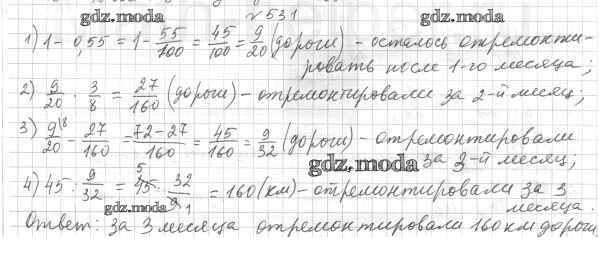 gdz.moda
№531
gdz.moda
1) 1 - 0,55 = 1 - 55/100 = 45/100 = 9/20 (дороги) - осталось отремонти-
ровать после 1-го месяца;
2) 9/20 · 3/8 = 27/160 (дороги) - отремонтировали за 2-й месяц;
3) 9/20 \8 - 27/160 = 72-27/160 = 45/160 = 9/32 (дороги) - отремонтировали
gdz.moda за 3-й месяц;
4) 45 : 9/32 = 45 5 · 32/9 1 = 160 (км) - отремонтировали за 3
gdz.moda месяца.
Ответ: за 3 месяца отремонтировали 160 км дороги.